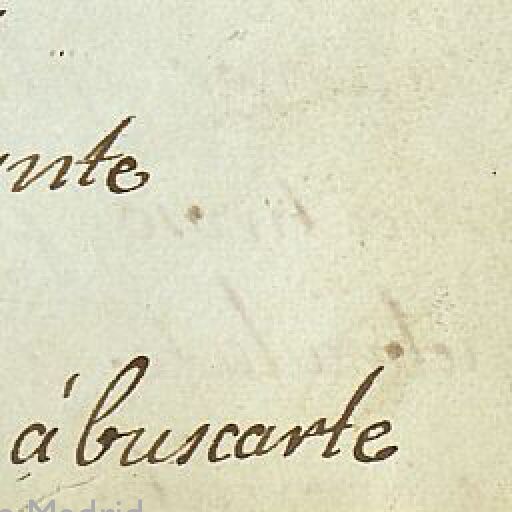 nte
á buscarte
Madrid